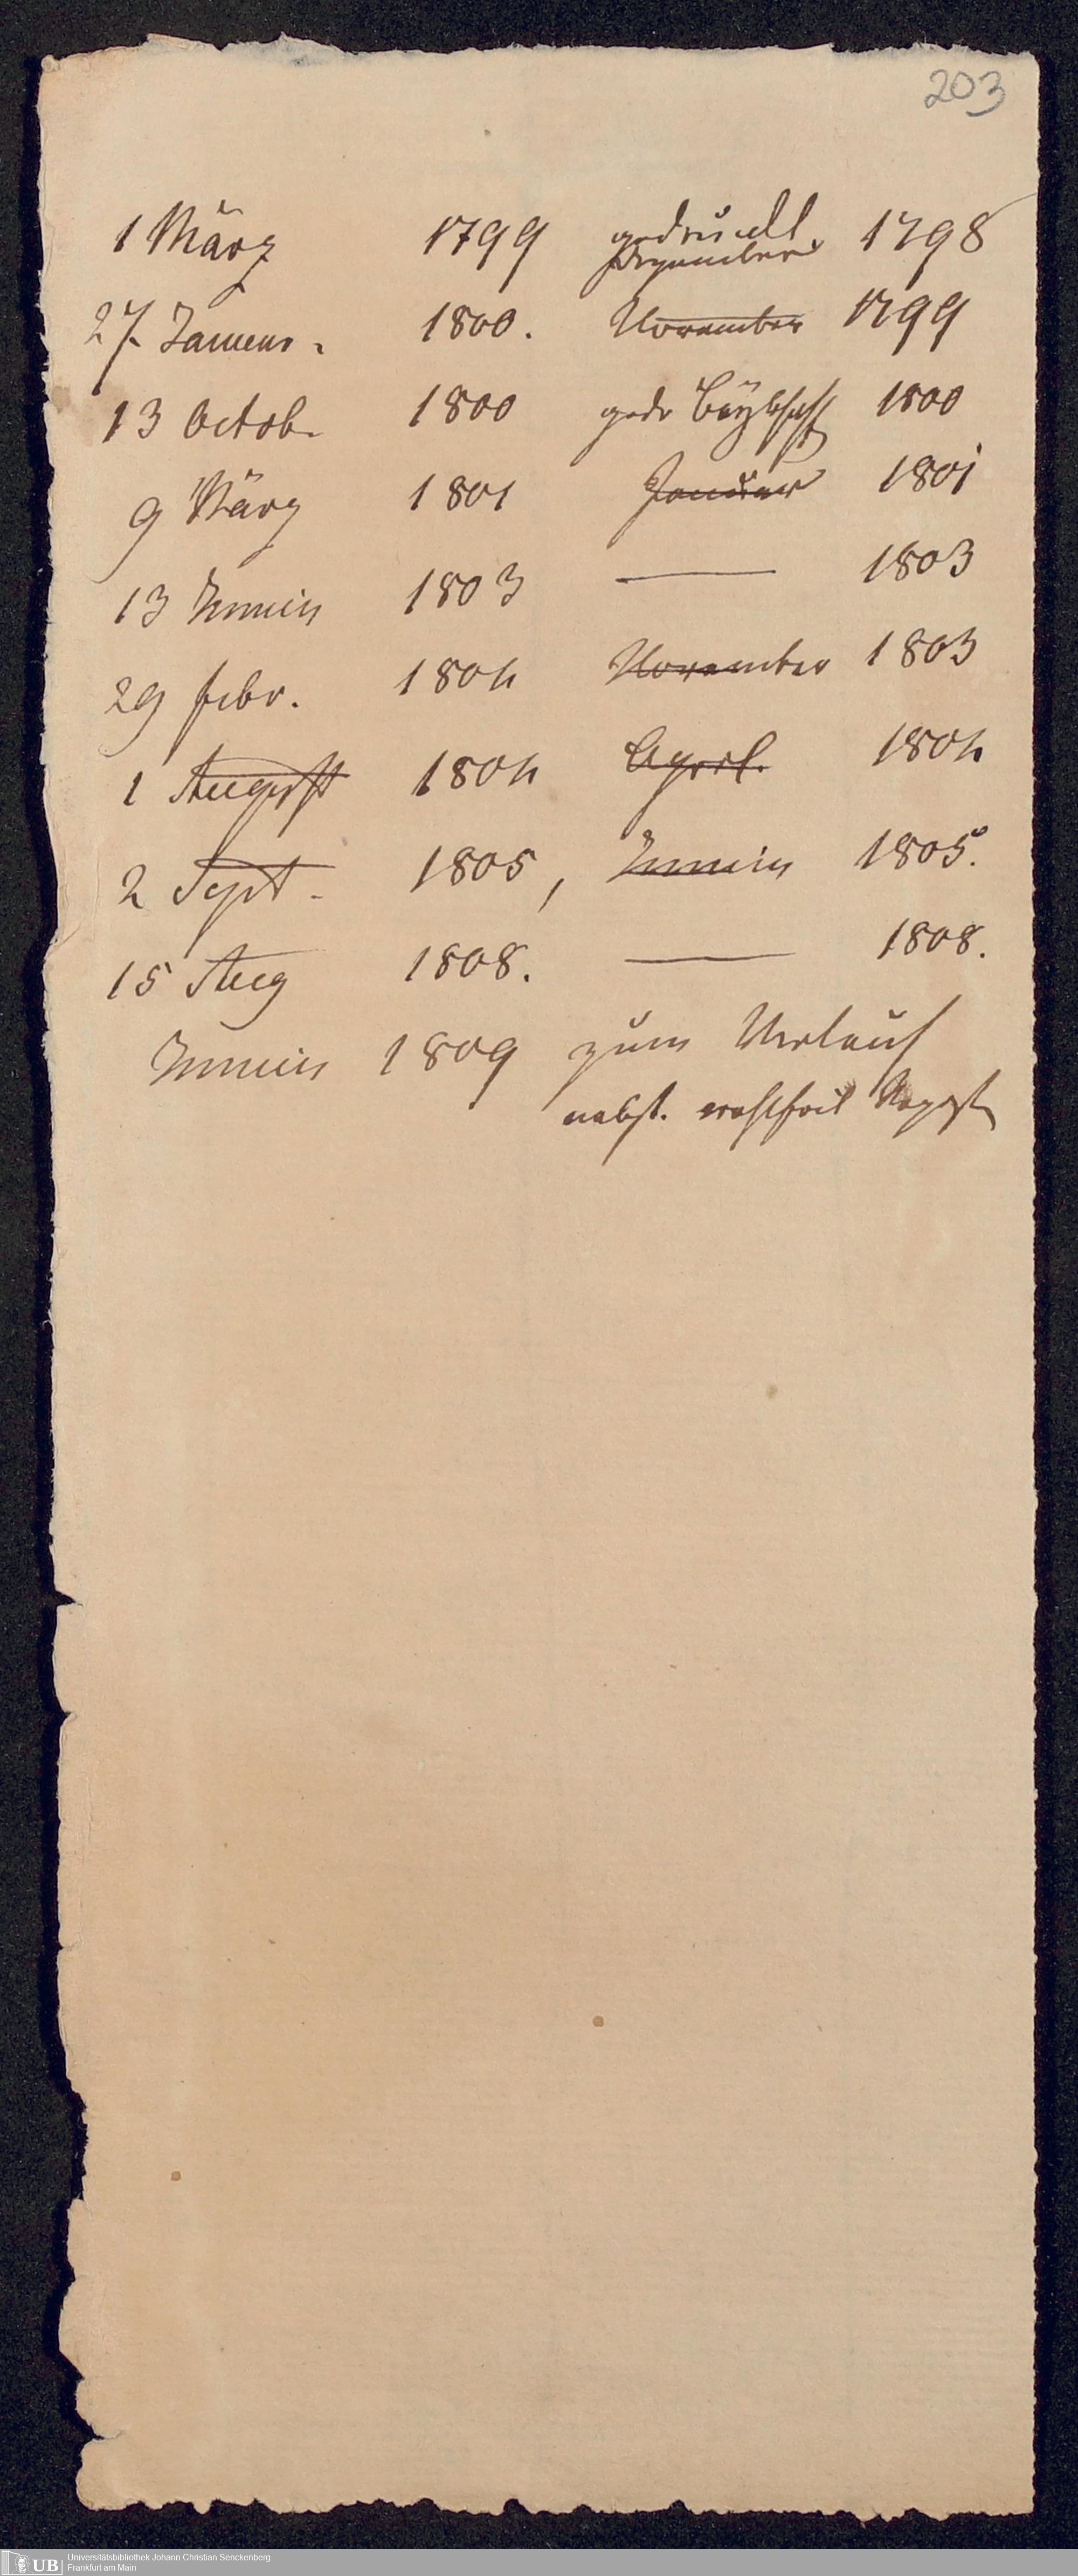 203
1 März 1799 gedruckt 1798
Dezember
27. Januar. 1800. November 1799
13 Octob. 1800 gedr 1800
9 März 1801 Januar 1801
13 Junius 1803 — 1803
29 febr. 1804 November 1803
1 August 1804 April. 1804
2 Sept. 1805, Junius 1805.
15 Aug 1808. — 1808.
Junius 1809 zum Verkauf
nebst. wohlfeil
UB Universitätsbibliothek Johann Christian Senckenberg
Frankfurt am Main